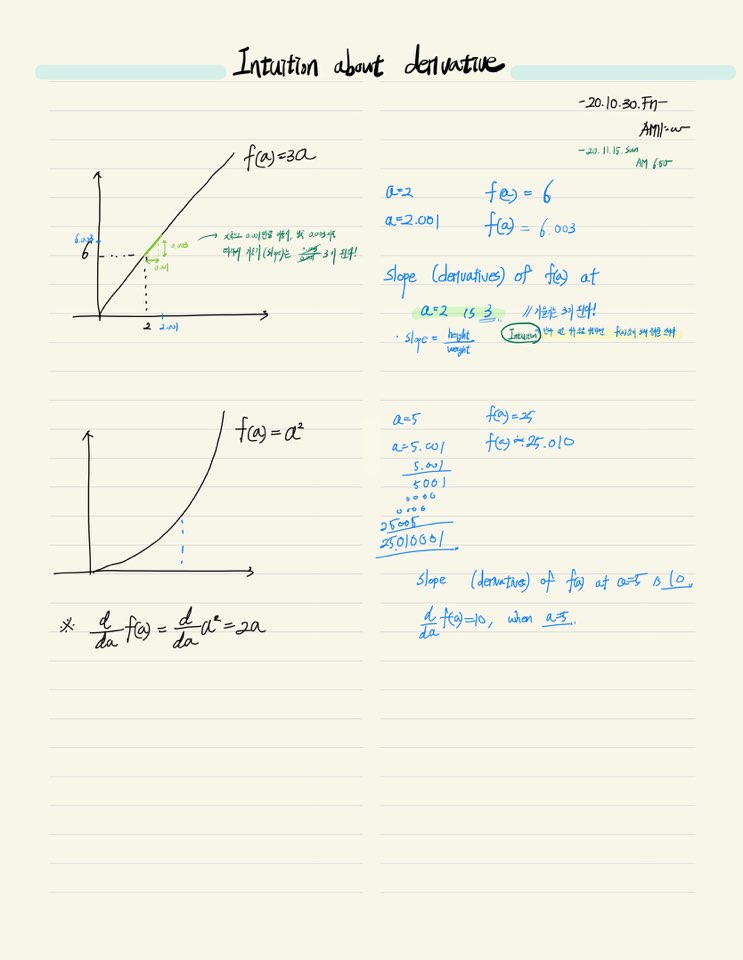 Intuition about derivative
-20.10.30.Fri-
AM11:
-20.11.15.Sun
AM 6:50
f(a)=3a
6.003
6
0.003
0.001
2
2.001
→ 0.001만큼 0.003
(slope)는 0.003/0.001 3이 된다!
a=2 f(a) = 6
a=2.001 f(a) = 6.003
Slope (derivatives) of f(a) at
a=2 is 3. // 기울기는 3이 된다!
· slope = height/weight
Intuition
f(a)=a²
※ d/da f(a) = d/da a² = 2a
a=5 f(a)=25
a=5.001 f(a)≈25.010
5.001
5001
0000
0000
25005
25.010001
slope (derivatives) of f(a) at a=5 is 10.
d/da f(a)=10, when a=5.